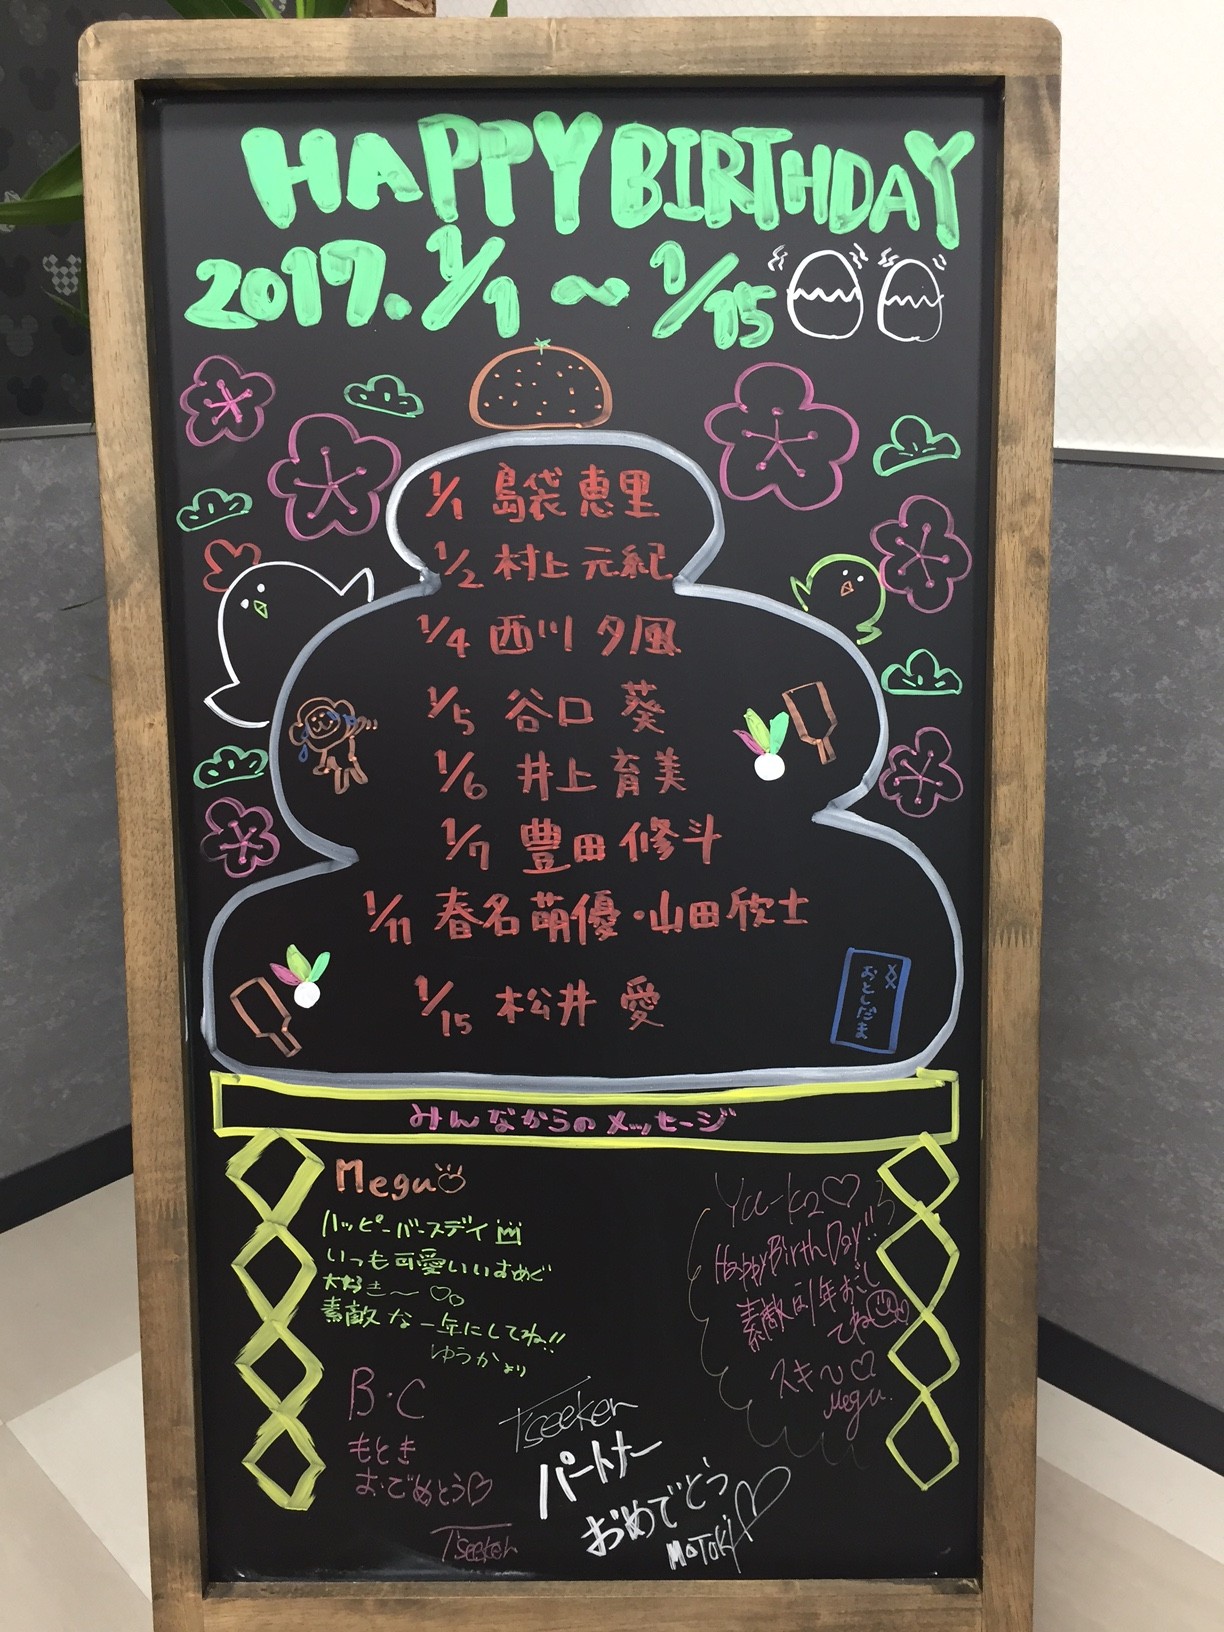 HAPPY BIRTHDAY
2017. 1/1 ～ 1/15
1/1 島袋 恵里
1/2 村上 元紀
1/4 西川 夕風
1/5 谷口 葵
1/6 井上 育美
1/7 豊田 修斗
1/11 春名萌優・山田欣士
1/15 松井 愛
おとしだま
みんなからのメッセージ
Megu
ハッピーバースデイ
いつも可愛いいすめぐ
大好き〜♡
素敵な一年にしてね!!
ゆうかより
Yu-ka♡
Happy Birth Day!!
素敵な1年すごし
てね
スキ〜♡
Megu.
B・C
もとき
おでめとう♡
T'seeker
T'seeker
パートナー
おめでとう
MOTOKI♡